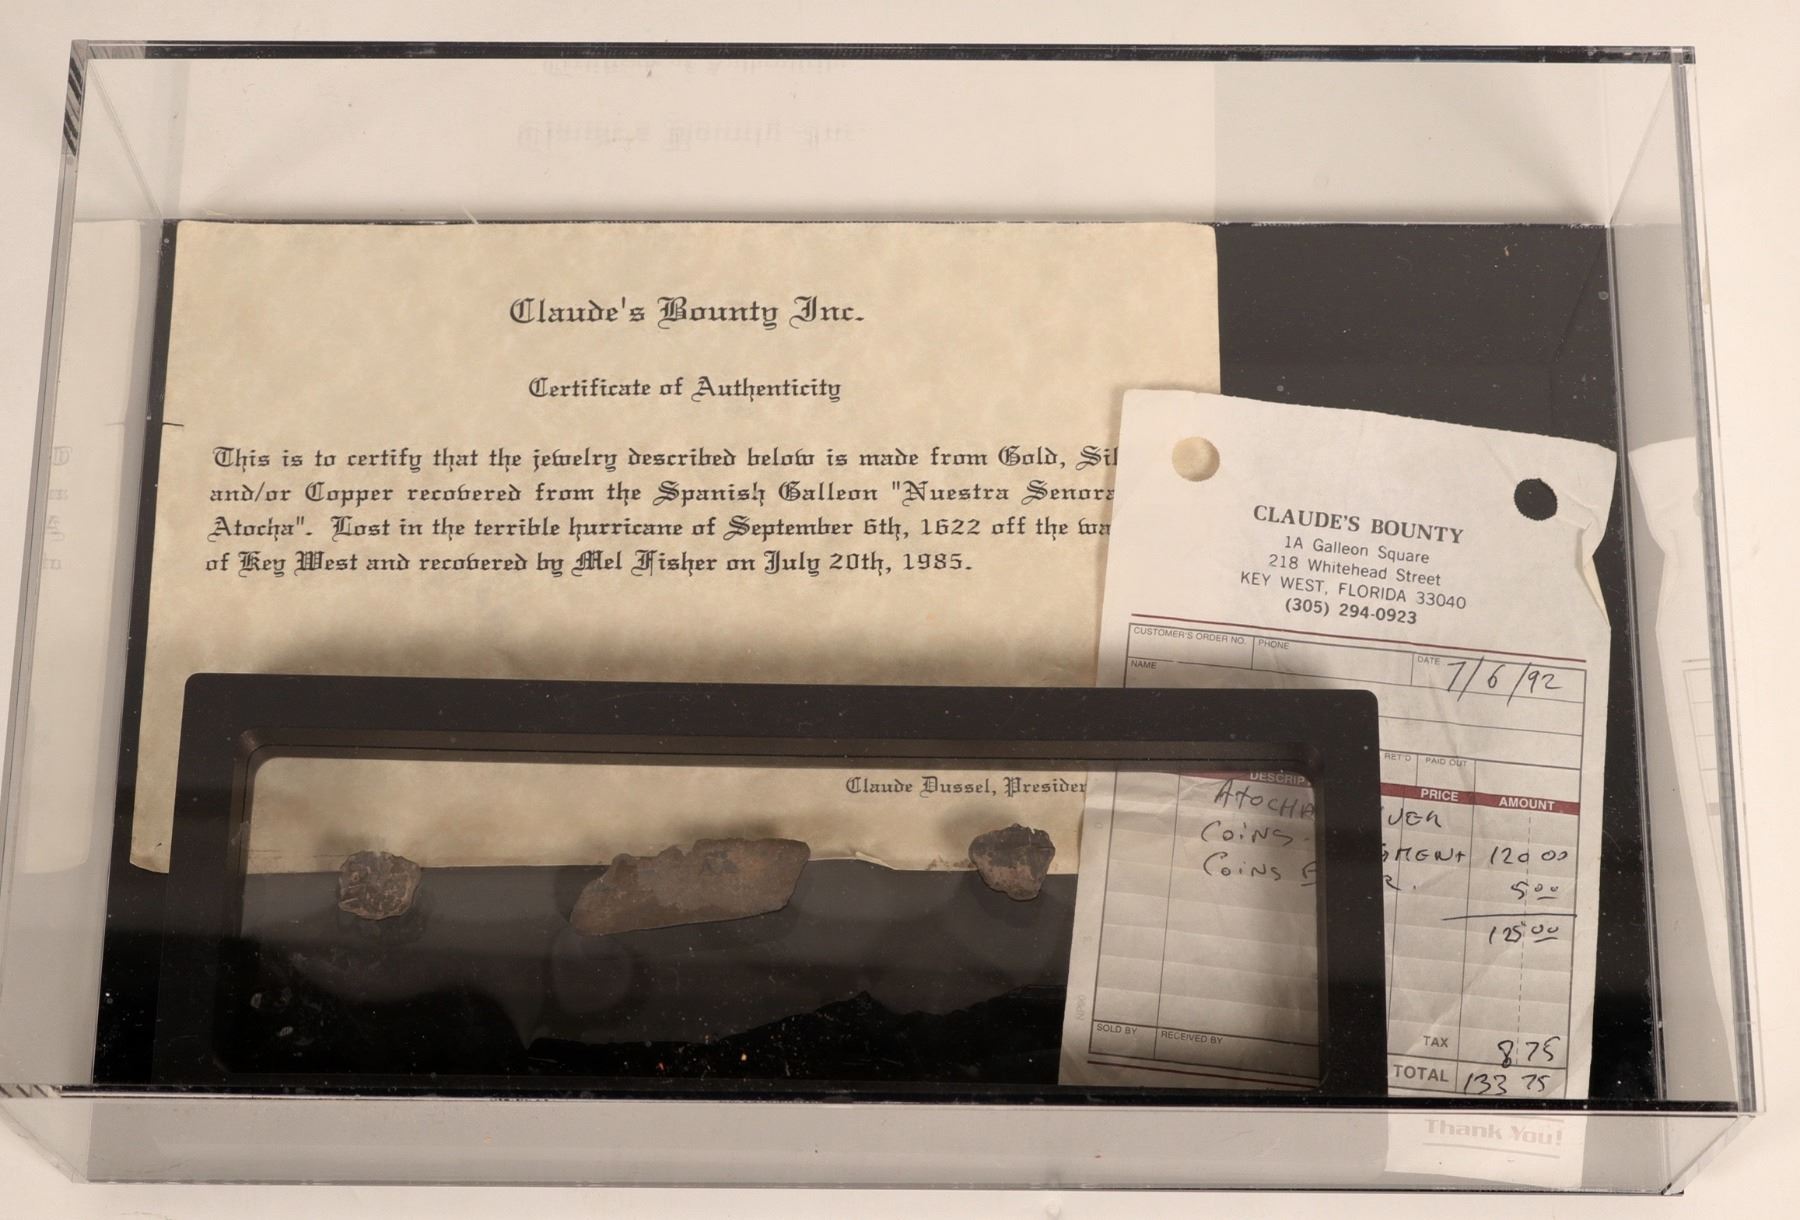 Claude's Bounty Inc.
Certificate of Authenticity
This is to certify that the jewelry described below is made from Gold, Sil
and/or Copper recovered from the Spanish Galleon "Nuestra Senora
Atocha". Lost in the terrible hurricane of September 6th, 1622 off the wa
of Key West and recovered by Mel Fisher on July 20th, 1985.
Claude Dussel, Presiden
CLAUDE'S BOUNTY
1A Galleon Square
218 Whitehead Street
KEY WEST, FLORIDA 33040
(305) 294-0923
CUSTOMER'S ORDER NO. PHONE DATE 7/6/92
NAME
RET'D PAID OUT
DESCRIP PRICE AMOUNT
ATOCHA VER
COINS -
GMENT 120 00
COINS
R. 5 00
125 00
SOLD BY RECEIVED BY
TAX 8 75
TOTAL 133 75
Thank You!